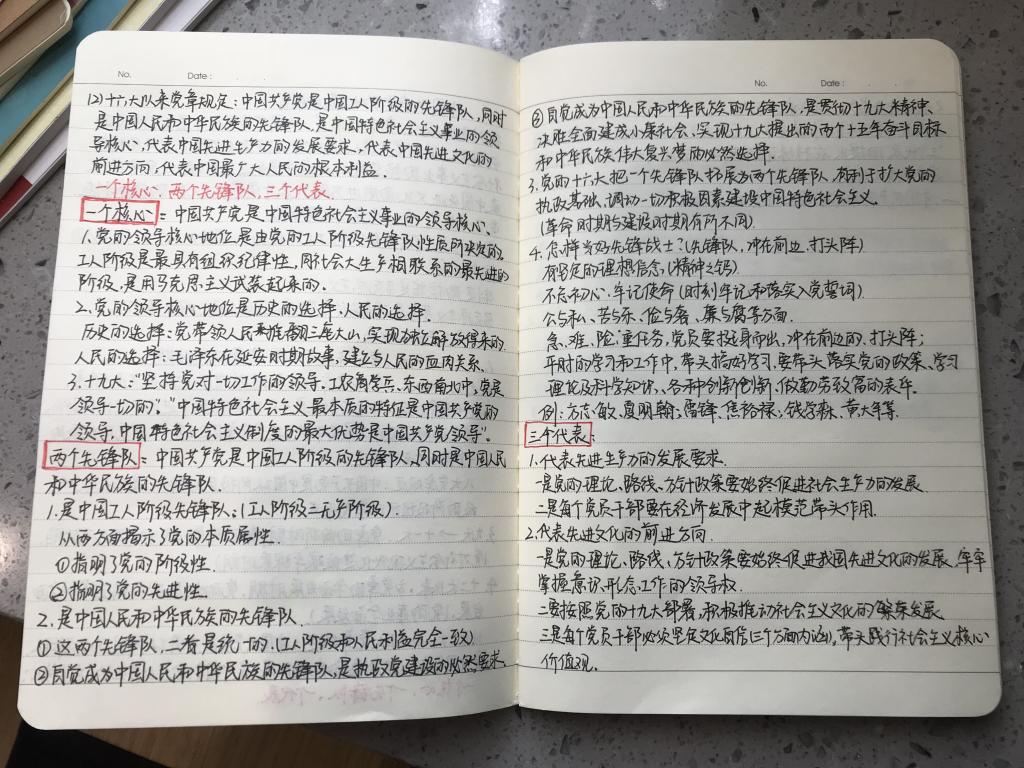 No. Date:
(2)十六大以来党章规定:中国共产党是中国工人阶级的先锋队,同时
是中国人民和中华民族的先锋队,是中国特色社会主义事业的领
导核心,代表中国先进生产力的发展要求,代表中国先进文化的
前进方向,代表中国最广大人民的根本利益.
一个核心、两个先锋队,三个代表.
一个核心:中国共产党是中国特色社会主义事业的领导核心.
1.党的领导核心地位是由党的工人阶级先锋队性质所决定的.
工人阶级是最具有组织纪律性,同社会大生产相联系的最先进的
阶级,是用马克思主义武装起来的.
2.党的领导核心地位是历史的选择,人民的选择.
历史的选择:党带领人民推翻三座大山,实现独立解放得来的
人民的选择:毛泽东在延安时期故事,建立与人民的血肉关系.
3.十九大:"坚持党对一切工作的领导.工农商学兵、东西南北中,党是
领导一切的"."中国特色社会主义最本质的特征是中国共产党的
领导,中国特色社会主义制度的最大优势是中国共产党领导".
两个先锋队:中国共产党是中国工人阶级的先锋队,同时是中国人民
和中华民族的先锋队.
1.是中国工人阶级先锋队:(工人阶级=无产阶级).
从两方面揭示了党的本质属性.
①指明了党的阶级性
②指明了党的先进性.
2.是中国人民和中华民族的先锋队.
①这两个先锋队,二者是统一的.(工人阶级和人民利益完全一致)
②自觉成为中国人民和中华民族的先锋队,是执政党建设的必然要求
No. Date:
③自觉成为中国人民和中华民族的先锋队,是贯彻十九大精神、
决胜全面建成小康社会、实现十九大提出的两个十五年奋斗目标
和中华民族伟大复兴梦的必然选择.
3.党的十六大把一个先锋队拓展为两个先锋队,有利于扩大党的
执政基础、调动一切积极因素建设中国特色社会主义.
(革命时期与建设时期有所不同)
4.怎样当好先锋战士?(先锋队,冲在前边、打头阵)
有坚定的理想信念,(精神之钙)
不忘初心、牢记使命(时刻牢记和落实入党誓词)
公与私、苦与乐、俭与奢、廉与腐等方面.
急、难、险、重任务,党员要挺身而出,冲在前边的、打头阵;
平时的学习和工作中,带头搞好学习,要带头落实党的政策、学习
理论及科学知识、各种创新创新,做勤劳致富的表率.
例:方志敏、夏明翰;雷锋、焦裕禄;钱学森、黄大年等.
三个代表:
1.代表先进生产力的发展要求.
一是党的理论、路线、方针政策要始终促进社会生产力的发展.
二是每个党员干部要在经济发展中起模范带头作用.
2.代表先进文化的前进方向.
一是党的理论、路线、方针政策要始终促进我国先进文化的发展,牢牢
掌握意识形态工作的领导权.
二要按照党的十九大部署,积极推动社会主义文化的繁荣发展.
三是每个党员干部必须坚定文化自信(三个方面内涵),带头践行社会主义核心
价值观.